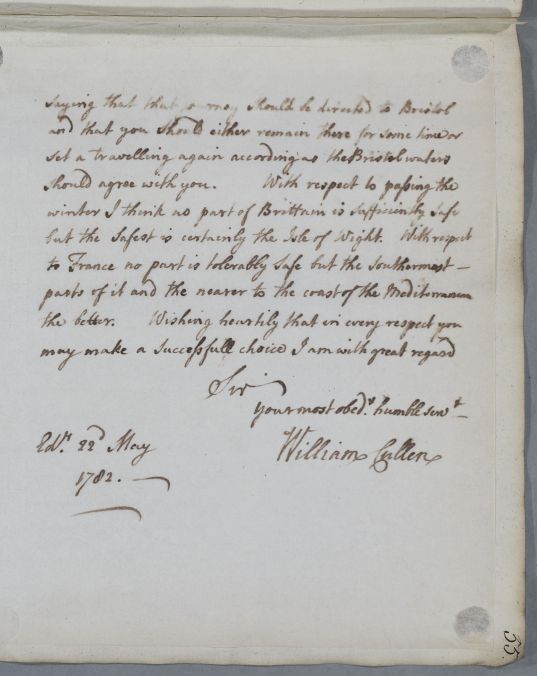 saying that that journey should be directed to Bristol
and that you should either remain there for some time or
set a travelling again according as the Bristol waters
should agree with you. With respect to passing the
winter I think no part of Brittain is sufficiently safe
but the safest is certainly the Isle of Wight. With respect
to France no part is tolerably safe but the southermost
parts of it and the nearer to the coast of the Mediterranean
the better. Wishing heartily that in every respect you
may make a successfull choice I am with great regard
Sir
Your most obedt. humble servt
Edr. 22d May
William Cullen
1782.
55.